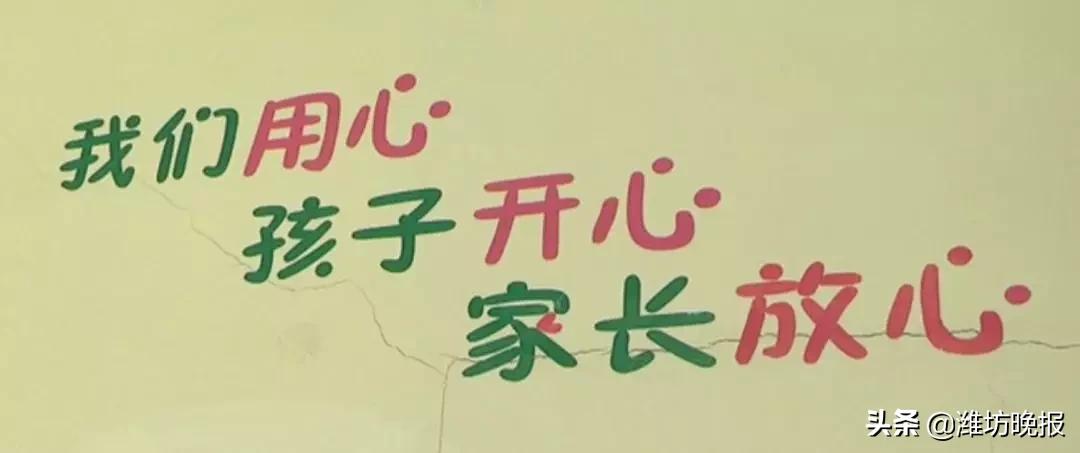 我们用心
孩子开心
家长放心
头条 @潍坊晚报